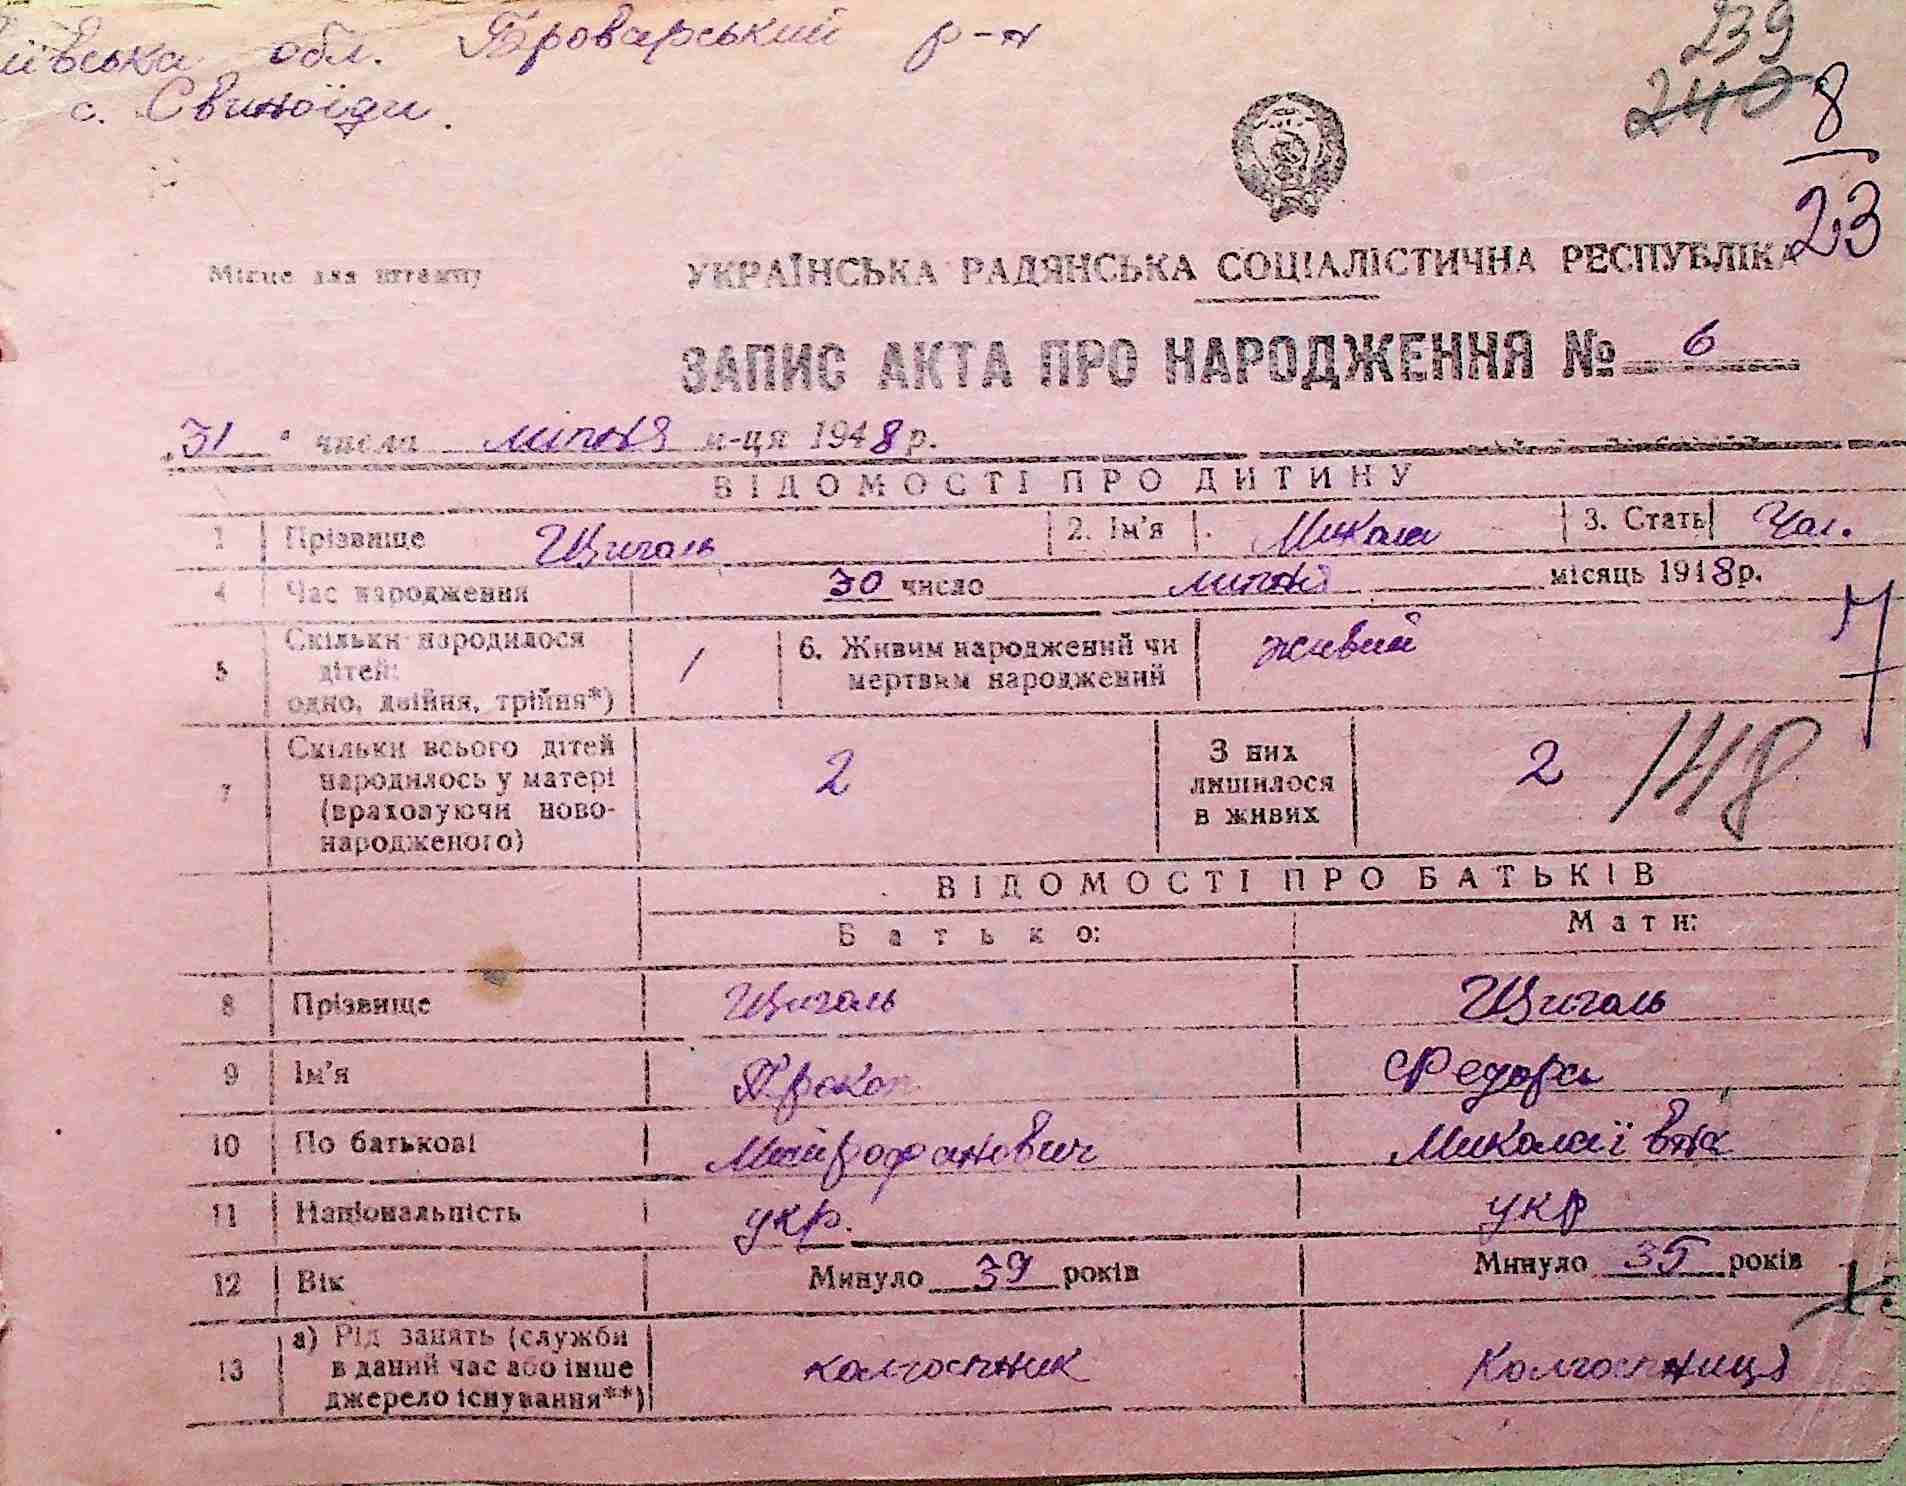 ївська обл. Броварський р-н
с. Свиноїди.
239
240
8
23
Місце для штампу
УКРАЇНСЬКА РАДЯНСЬКА СОЦІАЛІСТИЧНА РЕСПУБЛІКА
ЗАПИС АКТА ПРО НАРОДЖЕННЯ № 6
31 числа липня м-ця 1948 р.
ВІДОМОСТІ ПРО ДИТИНУ
1 Прізвище Цигаль 2. Ім'я Микола 3. Стать Чол.
4 Час народження 30 число липня місяць 1948 р.
5 Скільки народилося
дітей:
одно, двійня, трійня*) 1 6. Живим народжений чи
мертвим народжений живий
7 Скільки всього дітей
народилось у матері
(враховуючи ново-
народженого) 2 З них
лишилося
в живих 2
148
ВІДОМОСТІ ПРО БАТЬКІВ
Батько: Мати:
8 Прізвище Цигаль Цигаль
9 Ім'я Прокоп Федора
10 По батькові Митрофанович Миколаївна
11 Національність укр. укр
12 Вік Минуло 39 років Минуло 35 років
13 а) Рід занять (служби
в даний час або інше
джерело існування**) колгоспник Колгоспниця